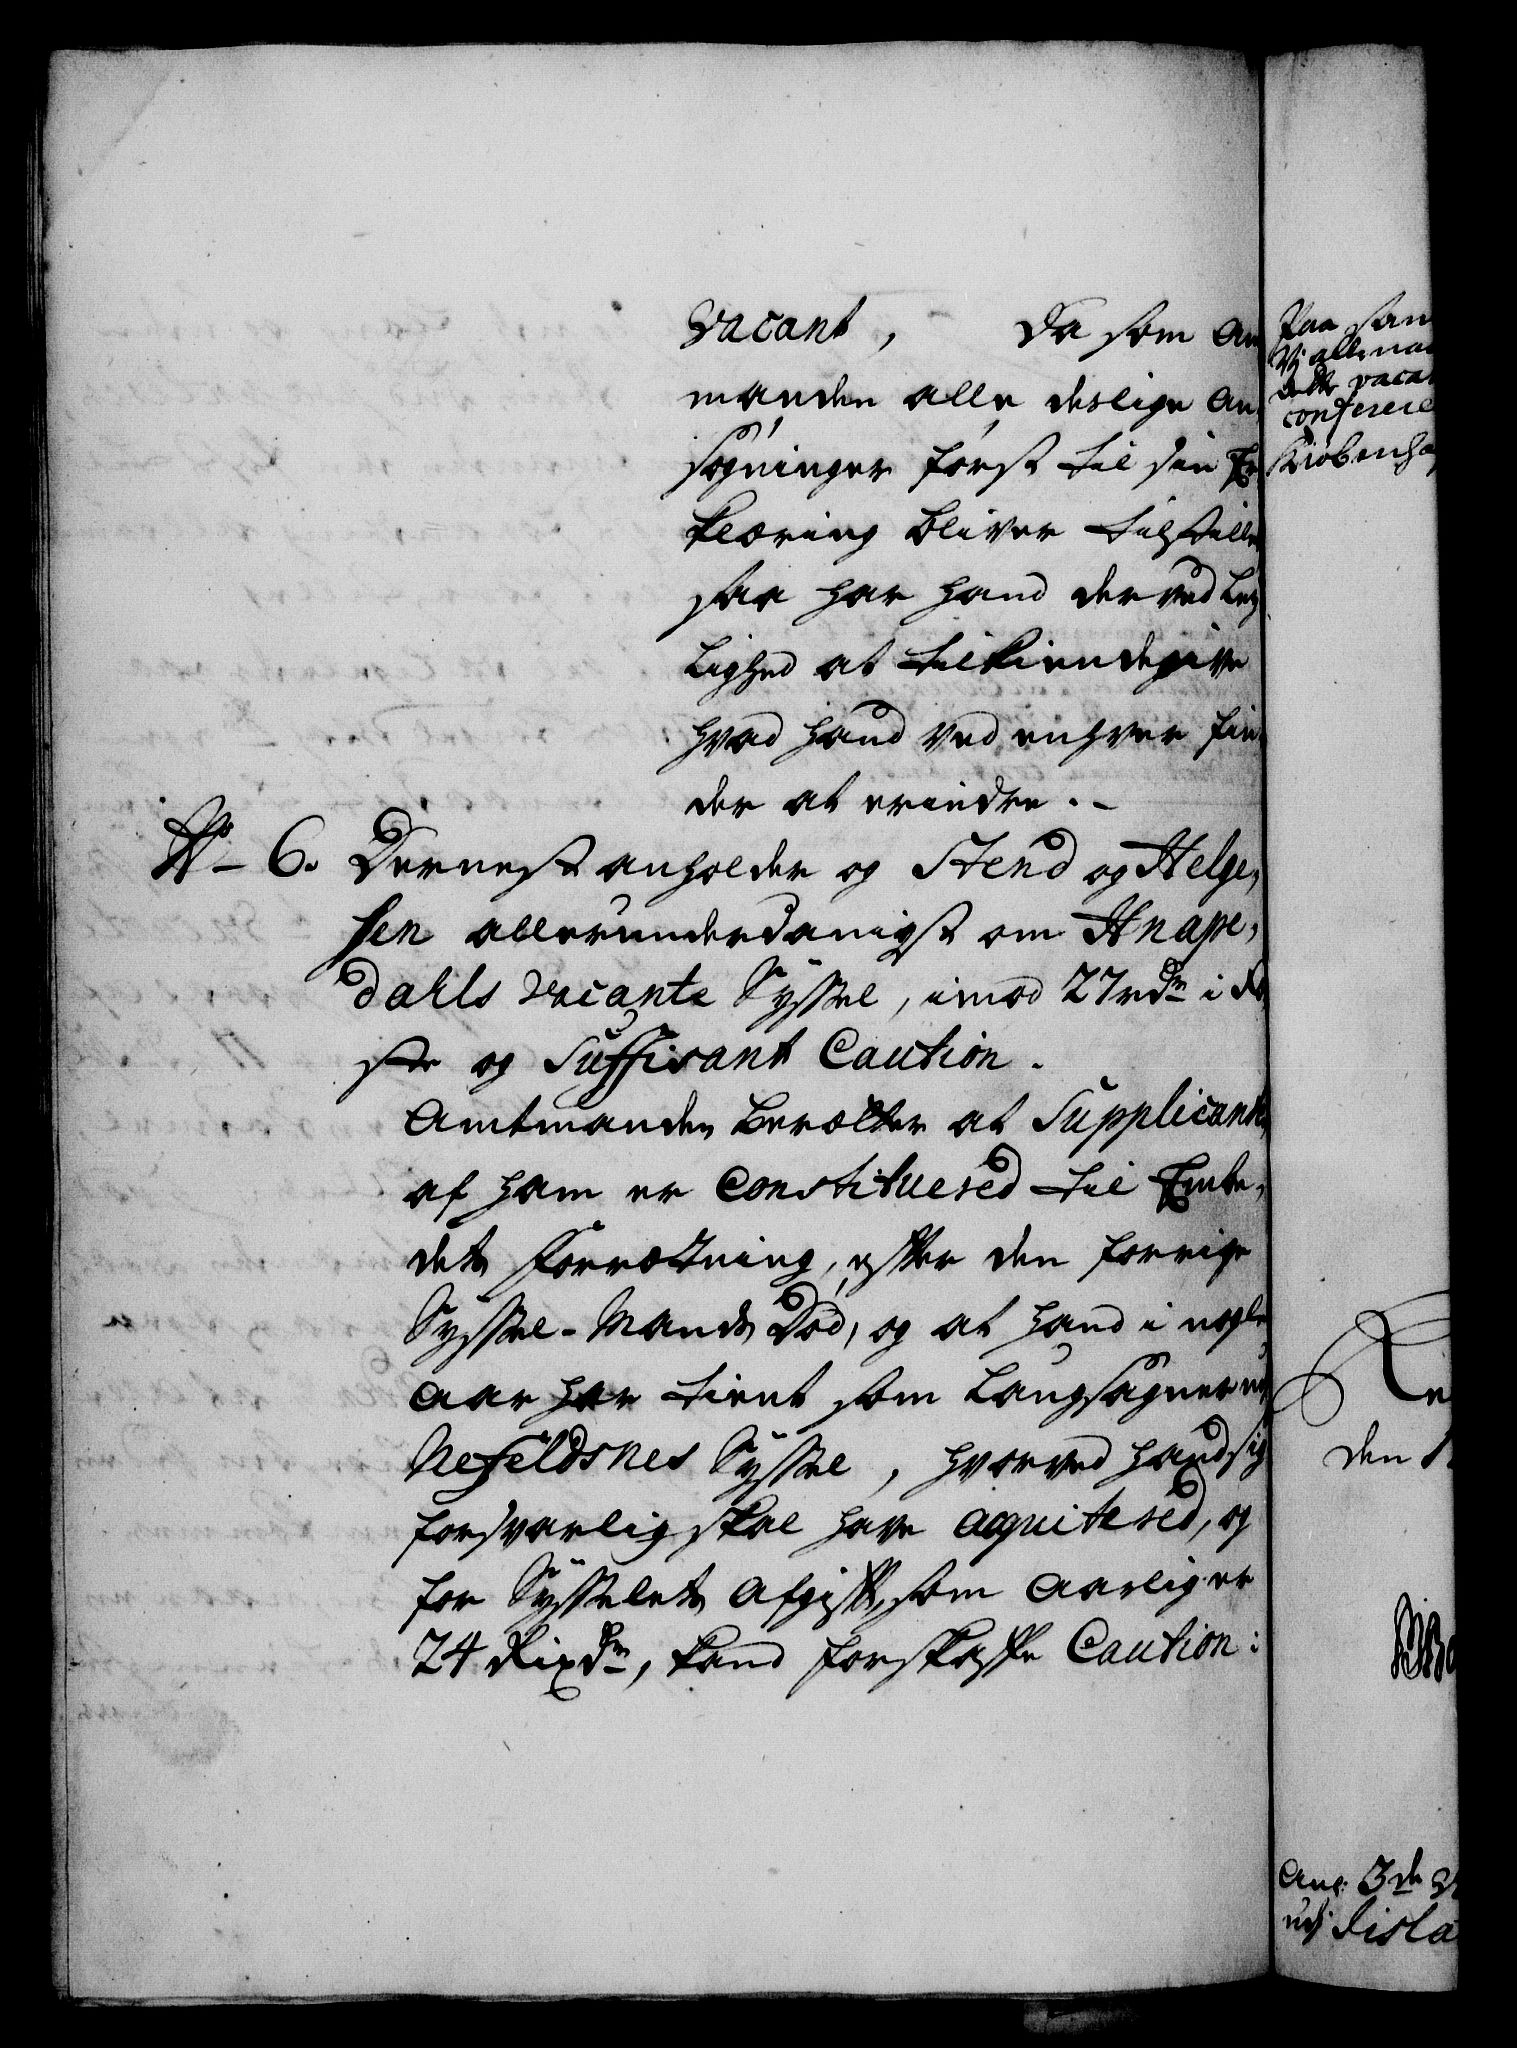 vacant, da som Am
manden alle deslige An,
søgninger først til sin Er
klæring bliver tilstillet
saa har hand derved Ley
lighed at tilkiendegive
hvad hand ved enhver fin
der at erindre.-
No 6. Dernest anholder og Stend og Helge,
sen allerunderdanigst om Hnape,
dahls vacante Syssel, imod 27 rdr i Fæ
ste og Suffisant Caution.
Amtmanden beretter at Supplicanten
af ham er Constituered til Embe,
dets Forretning, efter den forrige
Syssel-Mands Død, og at hand i nogle
aar har tient som Laugsagner udj
Nefeldsnes Syssel, hvorved hand sig
forsvarlig skal have acquitered, og
for Sysselets Afgift, som aarlig er
24 Rixdr, kand forskaffe Caution:
Paa sam
Vi allernaa
dette vacan
conferere
Kiøbenha
den 1
Ang: 3de
udj Isla